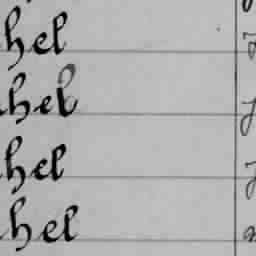 hel
hel
hel
hel